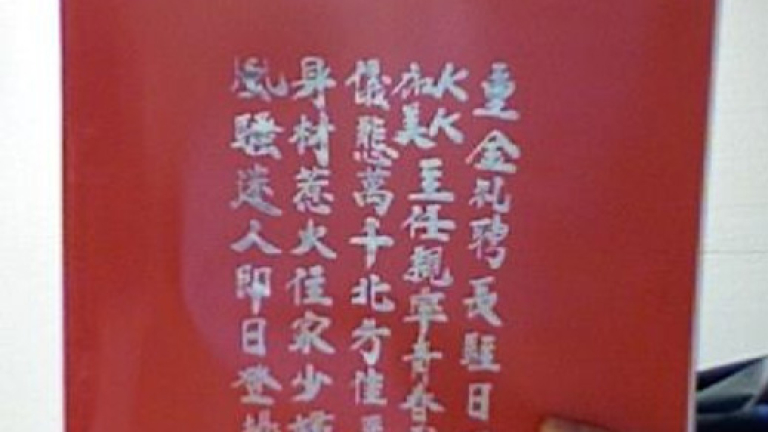 重金礼聘長駐日
KK
加美主任親率青春
儀態萬千北方佳
身材惹火住家少
風騷迷人即日登